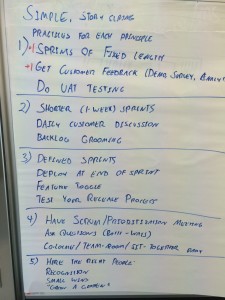 SIMPLE, STORY
PRACTICES FOR EACH PRINCIPLE
1) +1 SPRINTS OF FIXED LENGTH
+1 GET CUSTOMER FEEDBACK (DEMO, SURVEY,
DO UAT TESTING
2) SHORTER (1-WEEK) SPRINTS
DAILY CUSTOMER DISCUSSION
BACKLOG GROOMING
3) DEFINED SPRINTS
DEPLOY AT END OF SPRINT
FEATURE TOGGLE
TEST YOUR RELEASE PROCESS
4) HAVE SCRUM/PRIORITISATION MEETING
ASK QUESTIONS
COLOCATE/TEAM-ROOM/SIT-TOGETHER
5) HIRE THE RIGHT PEOPLE
RECOGNITION
SMALL WINS